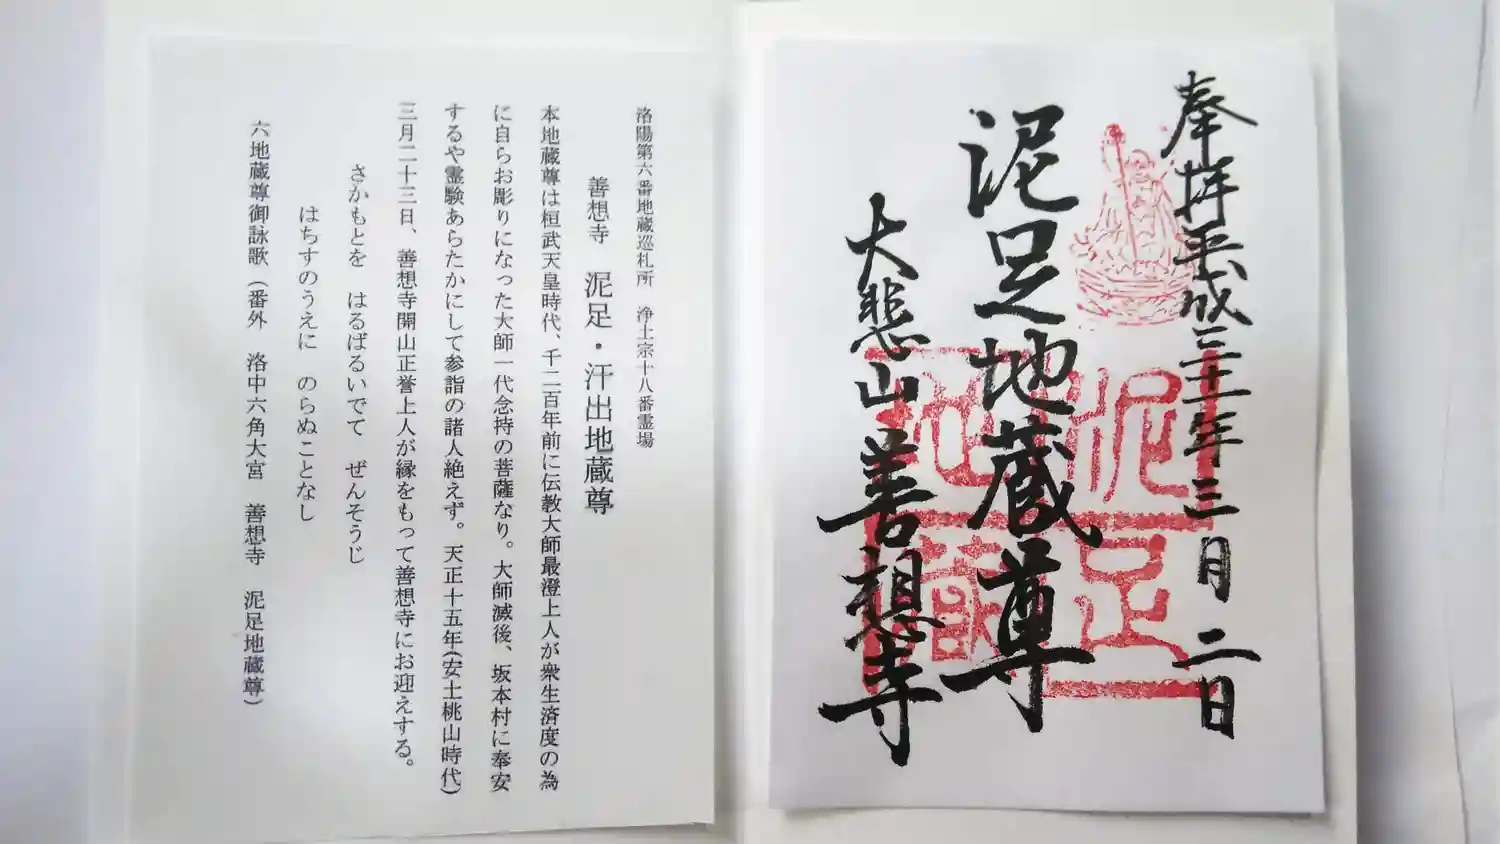 奉拝平成三十一年三月二日
泥足地蔵尊
大悲山善想寺
泥足
地蔵
洛陽第六番地蔵巡札所　浄土宗十八番霊場
善想寺　泥足・汗出地蔵尊
本地蔵尊は桓武天皇時代、千二百年前に伝教大師最澄上人が衆生済度の為
に自らお彫りになった大師一代念持の菩薩なり。大師滅後、坂本村に奉安
するや霊験あらたかにして参詣の諸人絶えず。天正十五年(安土桃山時代)
三月二十三日、善想寺開山正誉上人が縁をもって善想寺にお迎えする。
さかもとを　はるばるいでて　ぜんそうじ
はちすのうえに　のらぬことなし
六地蔵尊御詠歌（番外　洛中六角大宮　善想寺　泥足地蔵尊）